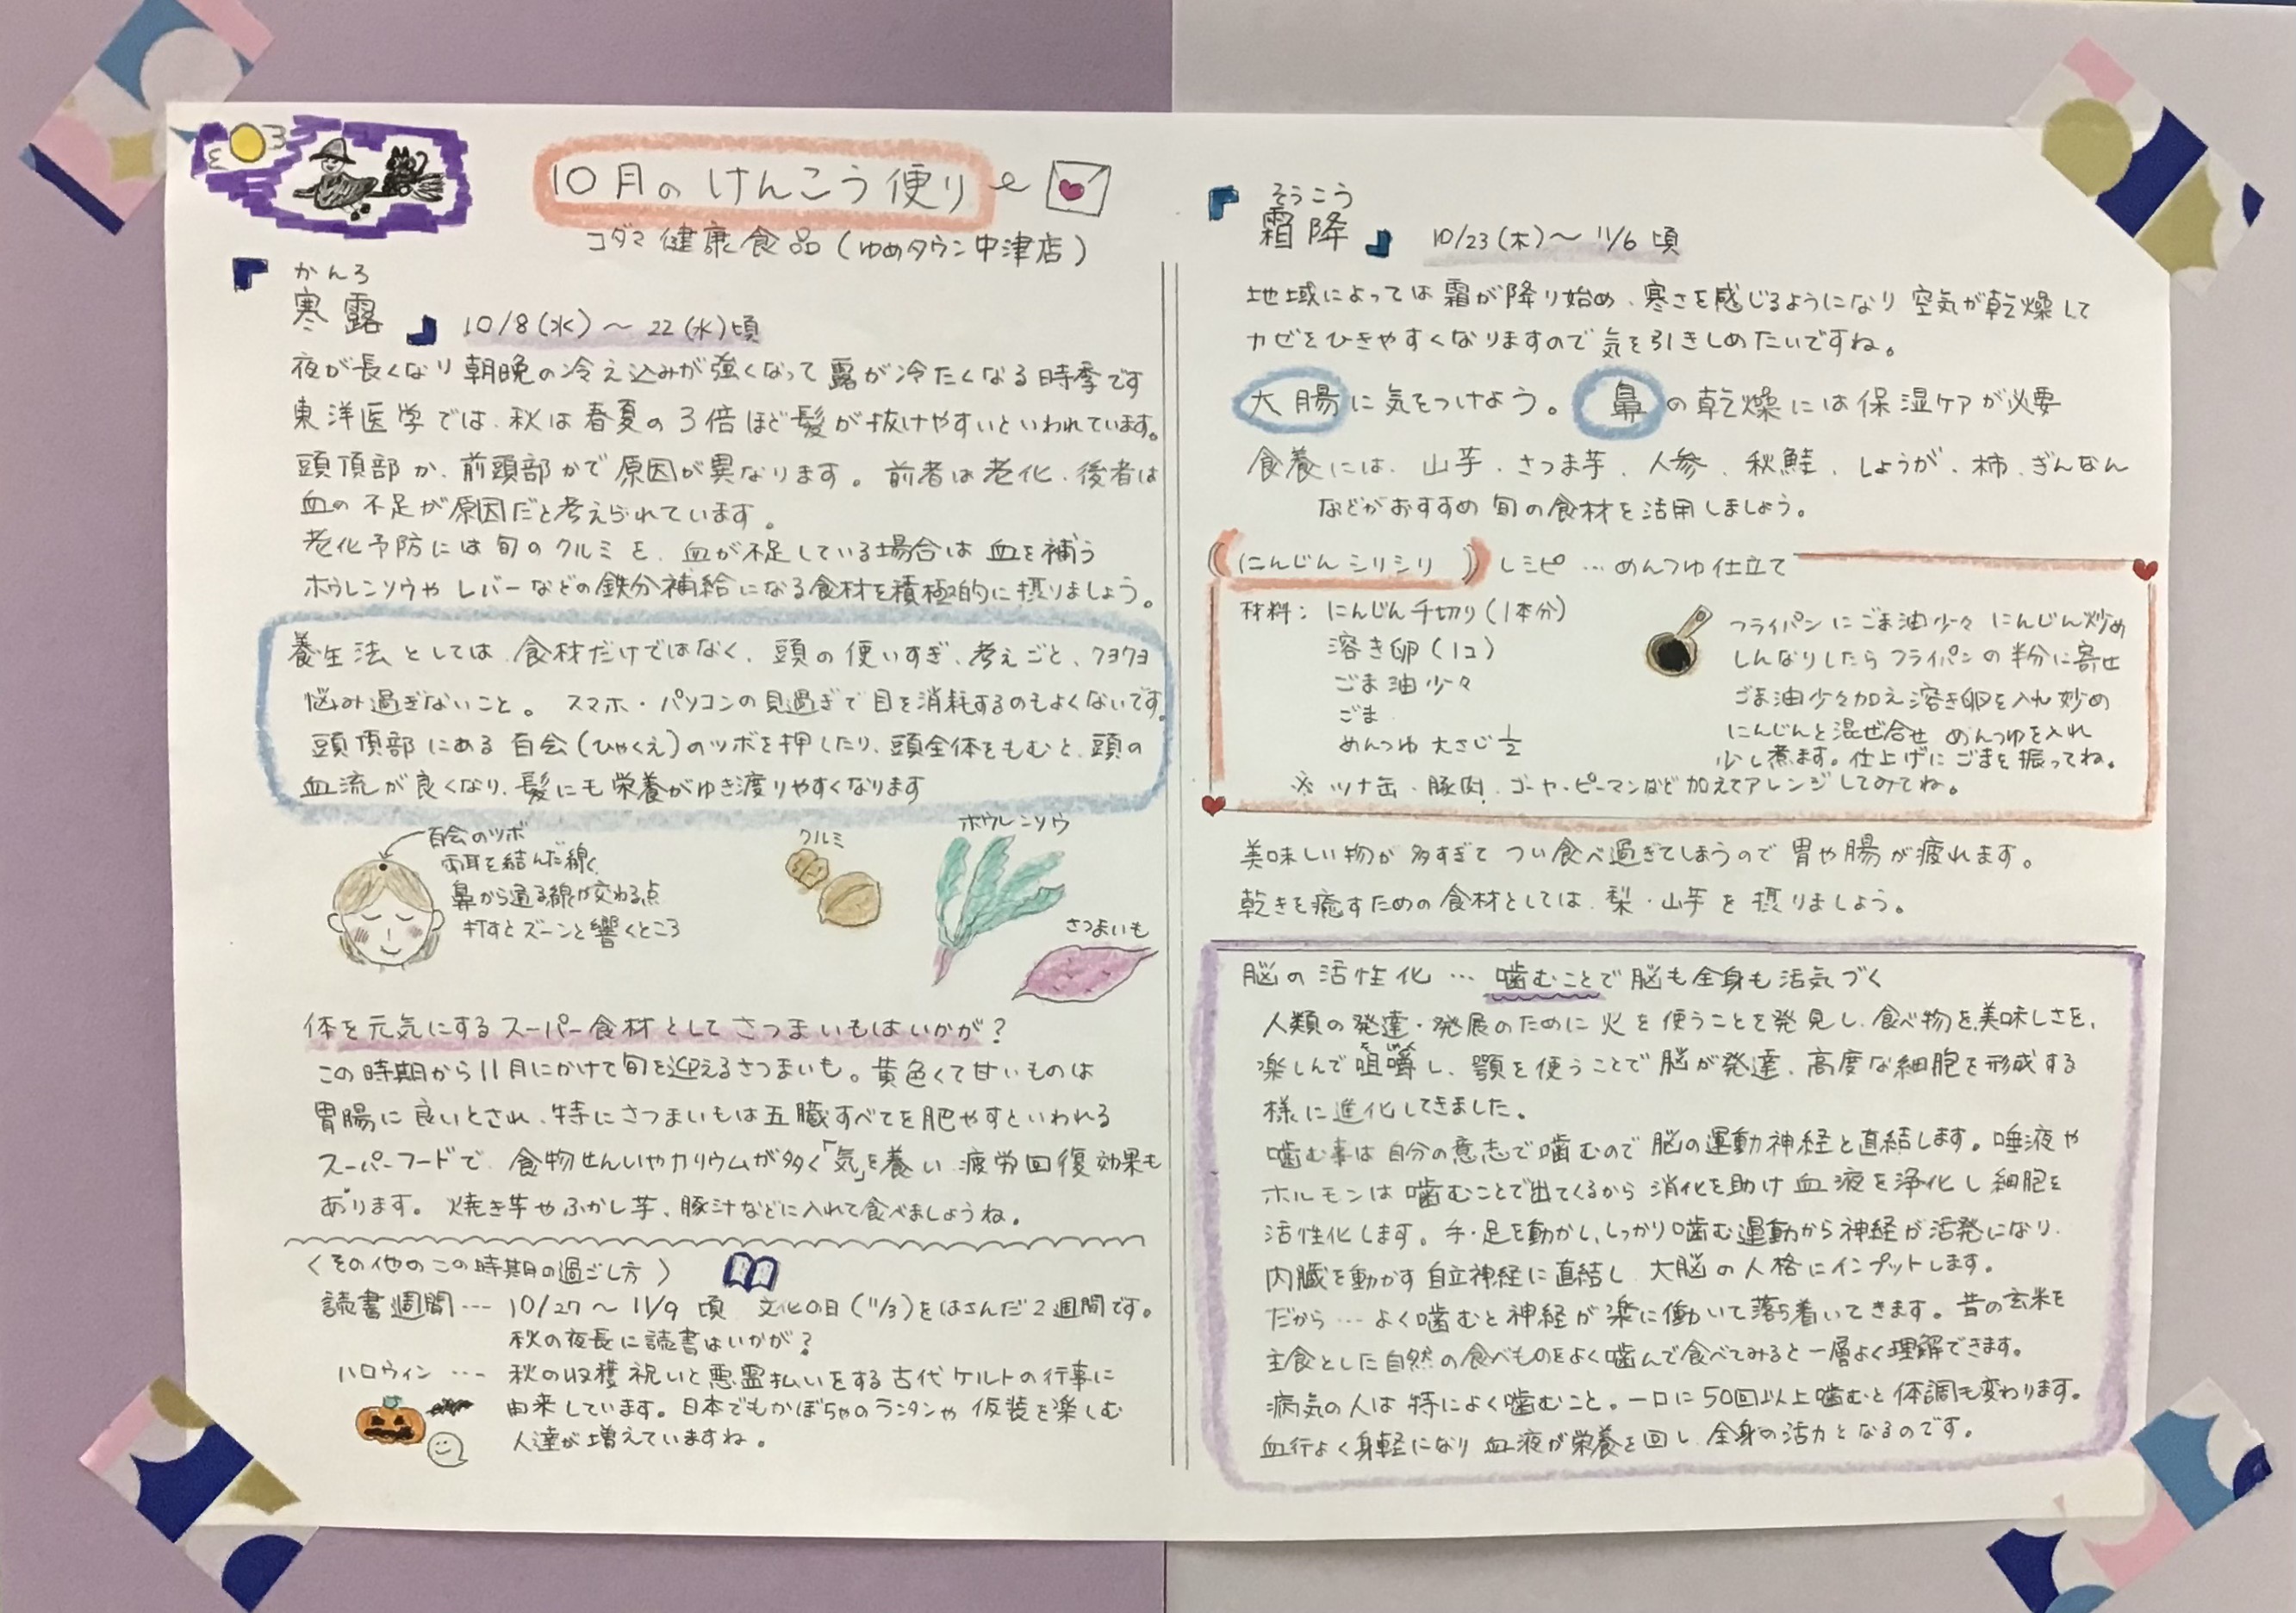 10月のけんこう便り
コダマ健康食品(ゆめタウン中津店)
かんろ
『寒露』 10/8(水)~22(水)頃
夜が長くなり朝晩の冷え込みが強くなって露が冷たくなる時季です
東洋医学では、秋は春夏の3倍ほど髪が抜けやすいといわれています。
頭頂部か、前頭部かで原因が異なります。前者は老化、後者は
血の不足が原因だと考えられています。
老化予防には旬のクルミを、血が不足している場合は血を補う
ホウレンソウやレバーなどの鉄分補給になる食材を積極的に摂りましょう。
養生法としては、食材だけではなく、頭の使いすぎ、考えごと、クヨクヨ
悩み過ぎないこと。スマホ・パソコンの見過ぎで目を消耗するのもよくないです。
頭頂部にある百会(ひゃくえ)のツボを押したり、頭全体をもむと、頭の
血流が良くなり、髪にも栄養がゆき渡りやすくなります
百会のツボ
両耳を結んだ線く
鼻から通る線が交わる点
押すとズーンと響くところ
クルミ
ホウレンソウ
さつまいも
体を元気にするスーパー食材としてさつまいもはいかが?
この時期から11月にかけて旬を迎えるさつまいも。黄色くて甘いものは
胃腸に良いとされ、特にさつまいもは五臓すべてを肥やすといわれる
スーパーフードで、食物せんいやカリウムが多く「気」を養い、疲労回復効果も
あります。焼き芋やふかし芋、豚汁などに入れて食べましょうね。
〈その他のこの時期の過ごし方〉
読書週間… 10/27~11/9頃 文化の日(11/3)をはさんだ2週間です。
秋の夜長に読書はいかが?
ハロウィン… 秋の収穫祝いと悪霊払いをする古代ケルトの行事に
由来しています。日本でもかぼちゃのランタンや仮装を楽しむ
人達が増えていますね。
そうこう
『霜降』 10/23(木)~11/6頃
地域によっては霜が降り始め、寒さを感じるようになり空気が乾燥して
カゼをひきやすくなりますので気を引きしめたいですね。
大腸に気をつけよう。鼻の乾燥には保湿ケアが必要
食養には、山芋、さつま芋、人参、秋鮭、しょうが、柿、ぎんなん
などがおすすめ旬の食材を活用しましょう。
(にんじんシリシリ)レシピ…めんつゆ仕立て
材料:にんじん千切り(1本分)
溶き卵(1コ)
ごま油少々
ごま
めんつゆ大さじ1/2
フライパンにごま油少々にんじん炒め
しんなりしたらフライパンの半分に寄せ
ごま油少々加え溶き卵を入れ炒め
にんじんと混ぜ合せめんつゆを入れ
少し煮ます。仕上げにごまを振ってね。
※ツナ缶・豚肉、ゴーヤ・ピーマンなど加えてアレンジしてみてね。
美味しい物が多すぎてつい食べ過ぎてしまうので胃や腸が疲れます。
乾きを癒すための食材としては、梨・山芋を摂りましょう。
脳の活性化…噛むことで脳も全身も活気づく
人類の発達・発展のために火を使うことを発見し、食べ物を美味しさを、
楽しんで咀嚼し、顎を使うことで脳が発達、高度な細胞を形成する
様に進化してきました。
噛む事は自分の意志で噛むので脳の運動神経と直結します。唾液や
ホルモンは噛むことで出てくるから消化を助け血液を浄化し細胞を
活性化します。手・足を動かし、しっかり噛む運動から神経が活発になり、
内臓を動かす自立神経に直結し、大脳の人格にインプットします。
だから…よく噛むと神経が楽に働いて落ち着いてきます。昔の玄米を
主食とした自然の食べものをよく噛んで食べてみると一層よく理解できます。
病気の人は特によく噛むこと。一口に50回以上噛むと体調も変わります。
血行よく身軽になり血液が栄養を回し、全身の活力となるのです。